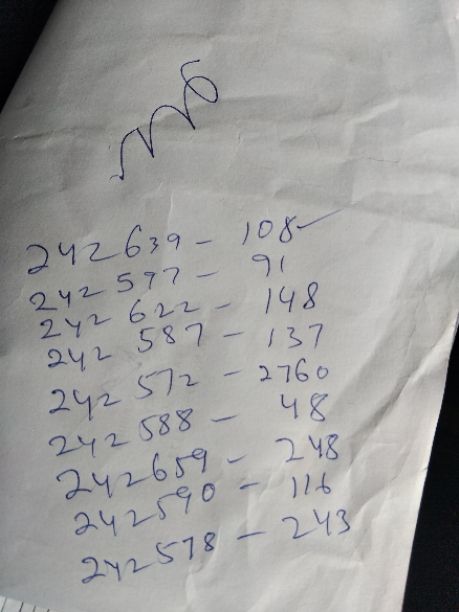 242639 - 108
242597 - 91
242622 - 148
242 587 - 137
242 572 - 2760
242588 - 48
242659 - 248
242590 - 116
242578 - 243